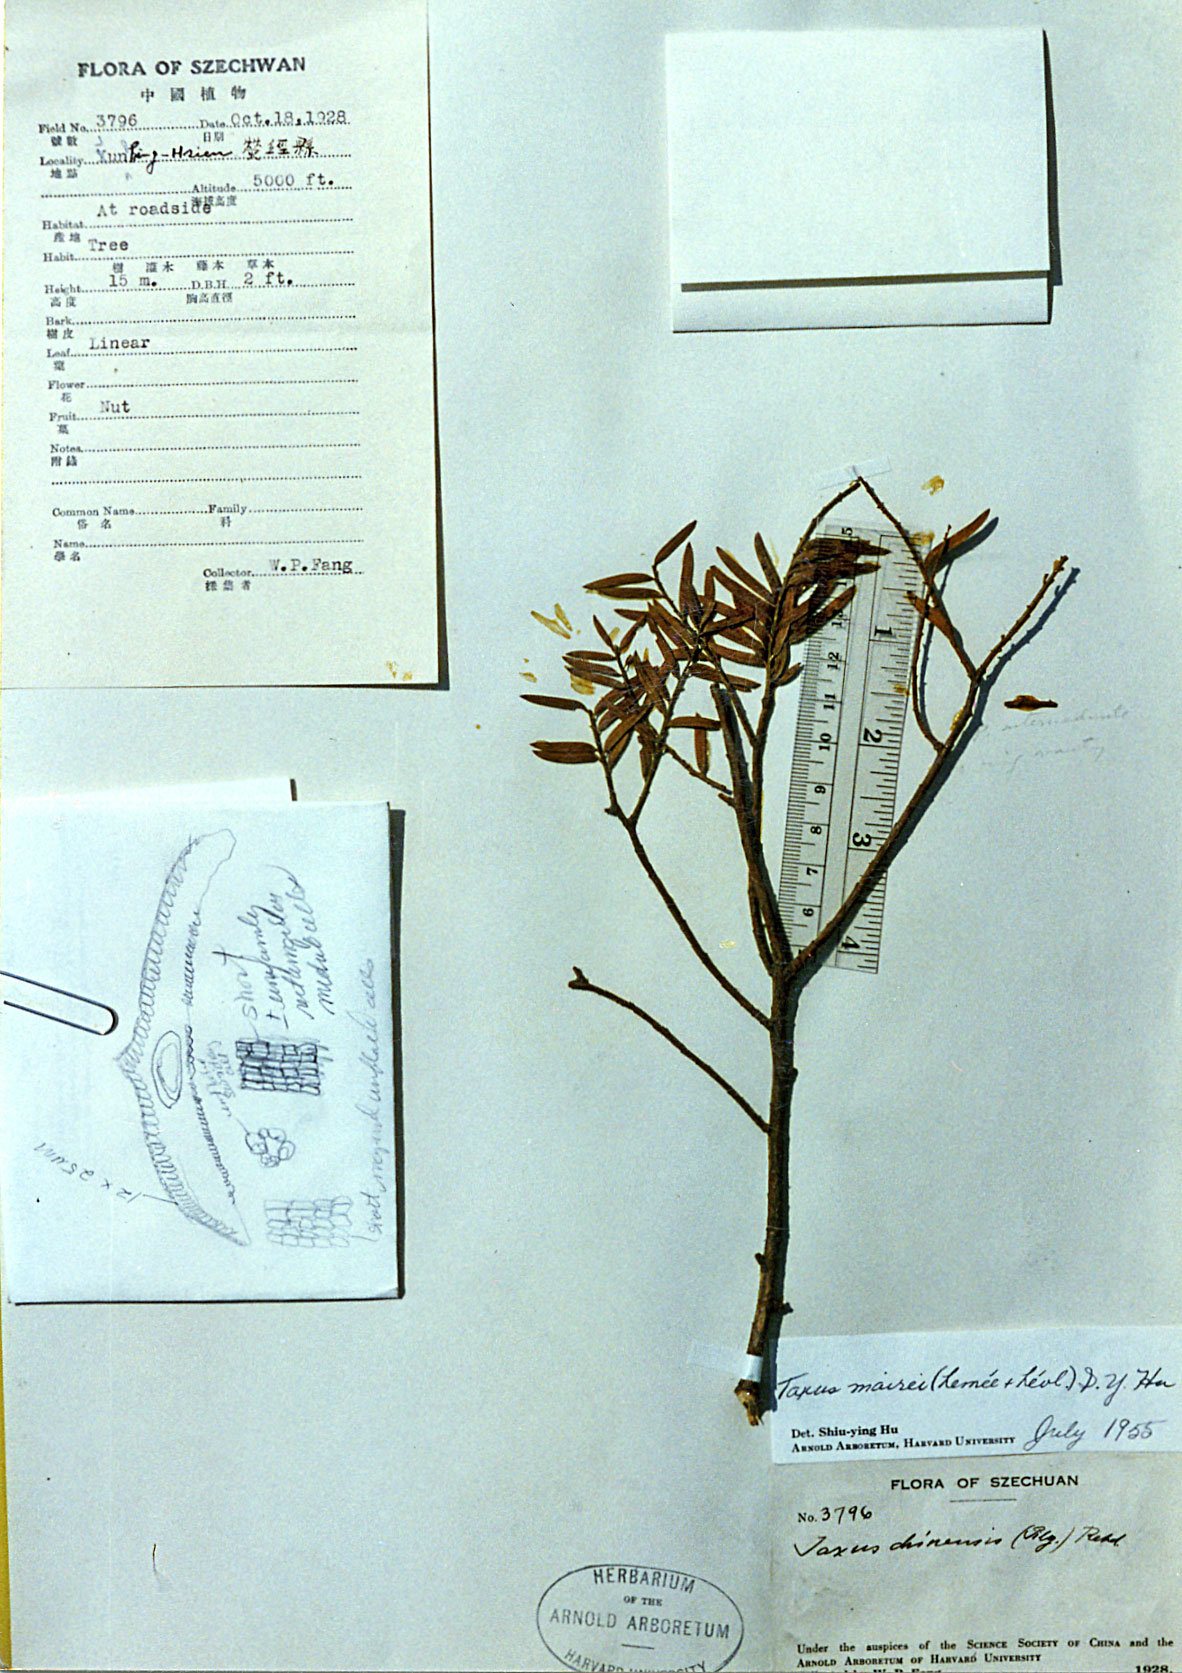 FLORA OF SZECHWAN
中國植物
Field No. 3796 Date Oct.18,1928
號數 日期
Locality Yunking-Hsien 滎經縣
地點
Altitude 5000 ft.
海拔高度
Habitat At roadside
產地
Habit Tree
樹 灌木 藤本 草本
Height 15 m. D.B.H. 2 ft.
高度 胸高直徑
Bark
樹皮
Leaf Linear
葉
Flower
花
Fruit Nut
菓
Notes
附錄
Common Name Family
俗名 科
Name
學名
Collector W.P.Fang
採集者
short
± uniformly
cells
12 x 25 µM
5
1
13
12
11
10
2
9
8
3
7
6
4
intermediate
Taxus mairei (Lemée & Lévl.) S. Y. Hu
Det. Shiu-ying Hu
ARNOLD ARBORETUM, HARVARD UNIVERSITY July 1955
FLORA OF SZECHUAN
No. 3796
Taxus chinensis (Pilg.) Rehd
HERBARIUM
OF THE
ARNOLD ARBORETUM
HARVARD UNIVERSITY
Under the auspices of the SCIENCE SOCIETY OF CHINA and the
ARNOLD ARBORETUM OF HARVARD UNIVERSITY
W. P. Fang 1928.